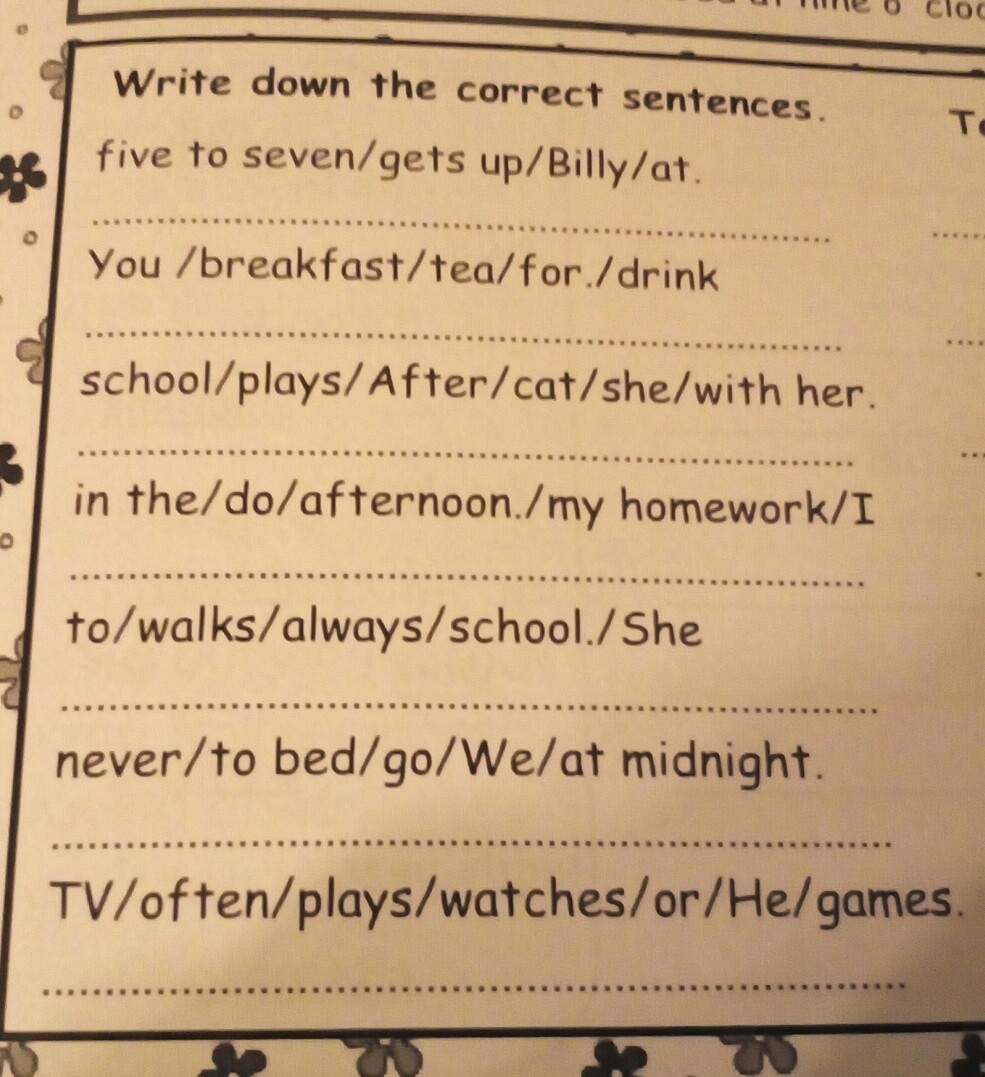 nine o' cloc
Write down the correct sentences.
five to seven/gets up/Billy/at.
You /breakfast/tea/for./drink
school/plays/After/cat/she/with her.
in the/do/afternoon./my homework/I
to/walks/always/school./She
never/to bed/go/We/at midnight.
TV/often/plays/watches/or/He/games.